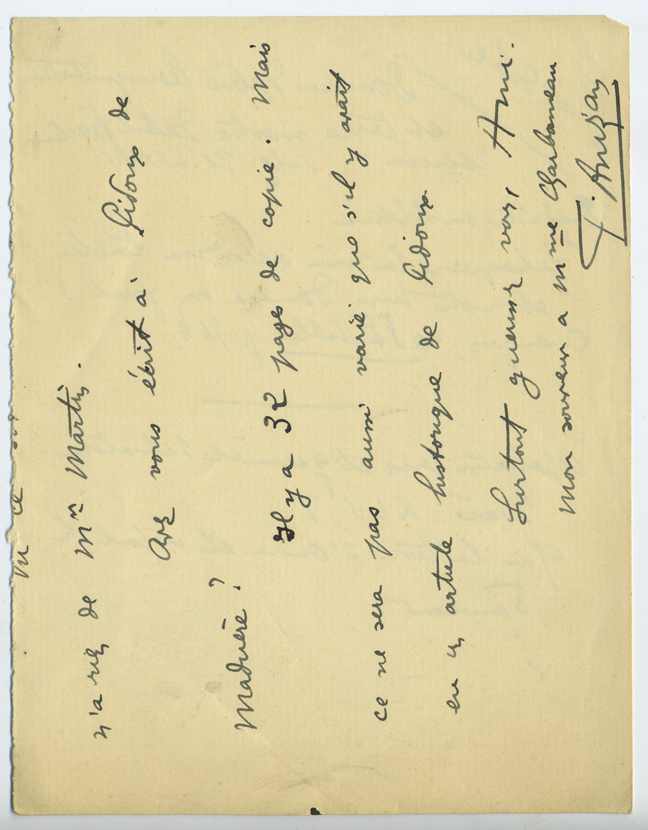 n'a rien de Mr Martin.
Avez vous écrit à Gidouin de
Maduère ?
Il y a 32 pages de copie. Mais
ce ne sera pas aussi varié que s'il y avait
eu un article historique de Gidouin.
Surtout guérissez vous, Ami.
Mon souvenir a Mme Charbonneau